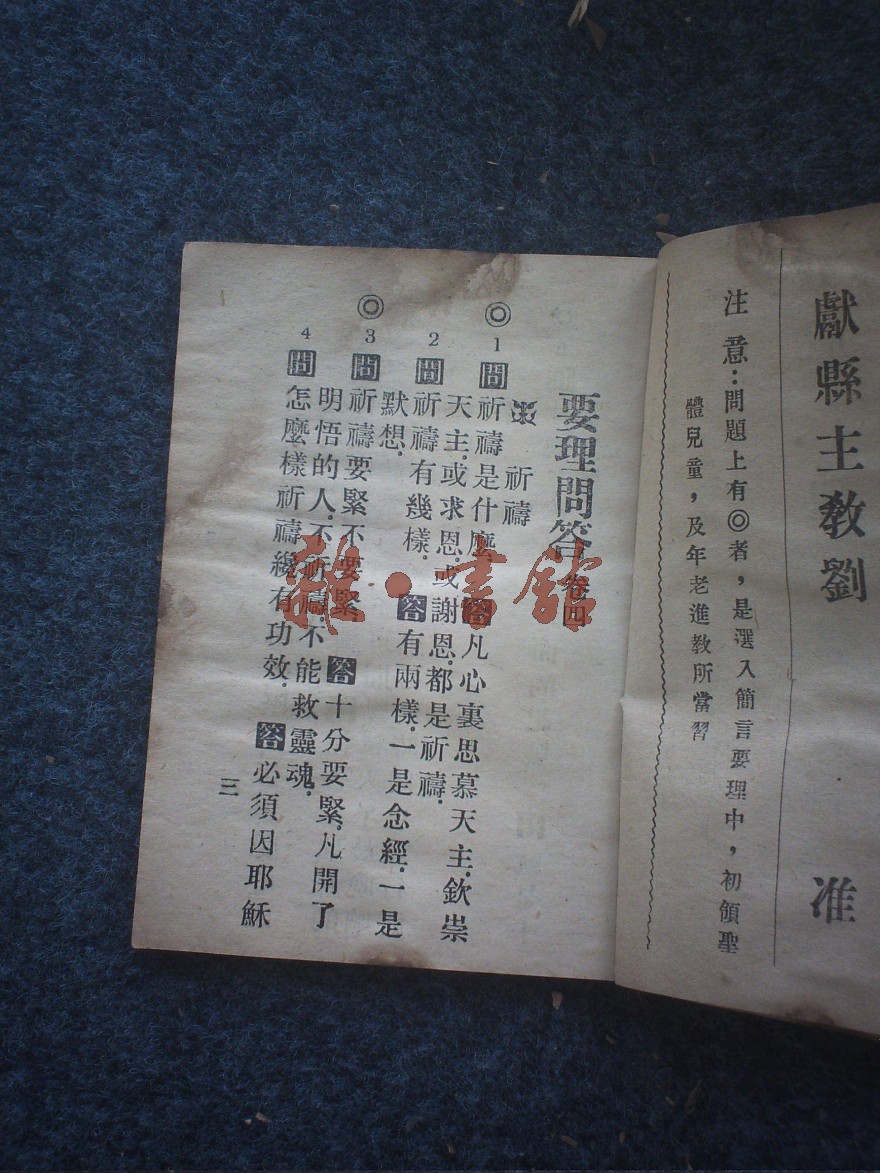 獻縣主教劉 准
注意：問題上有◎者，是選入簡言要理中，初領聖
體兒童，及年老進教所當習
要理問答 卷四
祈禱
◎ 1 問 祈禱是什麼 答 凡心裏思慕天主．欽崇
天主．或求恩．或謝恩．都是祈禱．
2 問 祈禱有幾樣． 答 有兩樣．一是念經．一是
默想．
◎ 3 問 祈禱要緊不要緊 答 十分要緊．凡開了
明悟的人．不祈禱．不能救靈魂．
4 問 怎麼樣祈禱纔有功效． 答 必須因耶穌
三
雜·書館